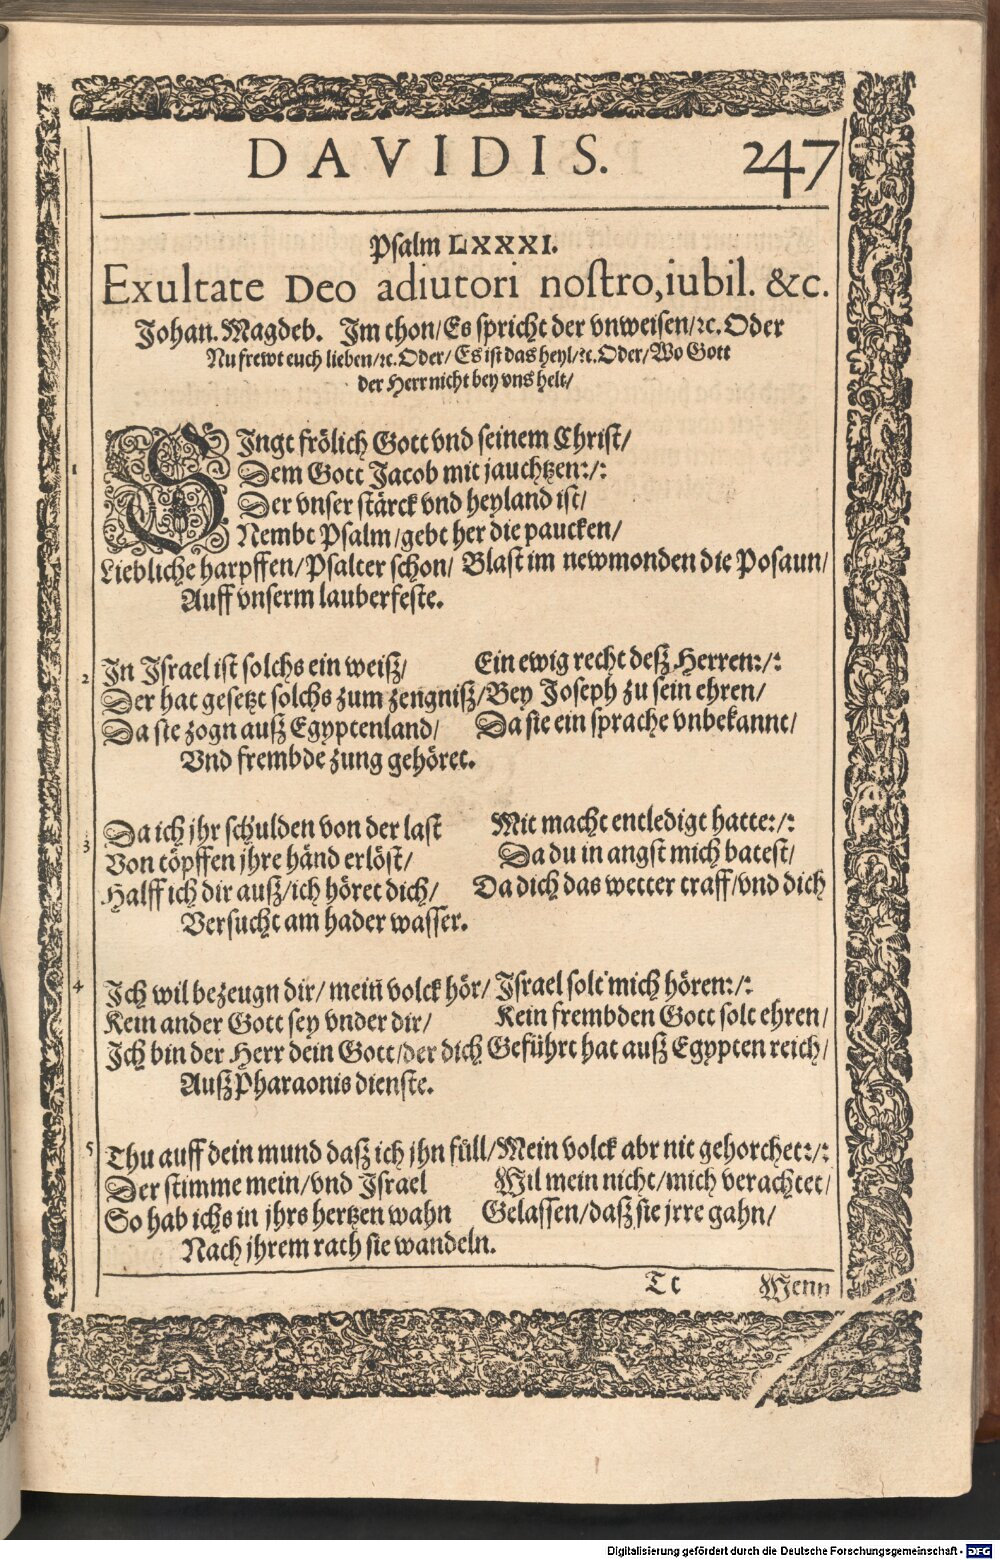 DAVIDIS. 247
Psalm LXXXI.
Exultate Deo adiutori nostro, iubil. &c.
Johan. Magdeb. Im thon/ Es spricht der vnweisen/ ꝛc. Oder
Nu frewt euch lieben/ ꝛc. Oder/ Es ist das heyl/ ꝛc. Oder/ Wo Gott
der Herr nicht bey vns helt/
1 SIngt frölich Gott vnd seinem Christ/
Dem Gott Jacob mit jauchtzen:/:
Der vnser stärck vnd heyland ist/
Nembt Psalm/ gebt her die paucken/
Liebliche harpffen/ Psalter schon/ Blast im newmonden die Posaun/
Auff vnserm lauberfeste.
2 In Israel ist solchs ein weiß/ Ein ewig recht deß Herren:/:
Der hat gesetzt solchs zum zengniß/ Bey Joseph zu sein ehren/
Da sie zogn auß Egyptenland/ Da sie ein sprache vnbekannt/
Vnd frembde zung gehöret.
3 Da ich jhr schulden von der last Mit macht entledigt hatte:/:
Von töpffen jhre händ erlöst/ Da du in angst mich batest/
Halff ich dir auß/ ich höret dich/ Da dich das wetter traff/ vnd dich
Versucht am hader wasser.
4 Ich wil bezeugn dir/ mein volck hör/ Israel solt mich hören:/:
Kein ander Gott sey vnder dir/ Kein frembden Gott solt ehren/
Ich bin der Herr dein Gott/ der dich Geführt hat auß Egypten reich/
Auß Pharaonis dienste.
5 Thu auff dein mund daß ich jhn füll/ Mein volck abr nit gehorchet:/:
Der stimme mein/ vnd Israel Wil mein nicht/ mich verachtet/
So hab ichs in jhrs hertzen wahn Gelassen/ daß sie jrre gahn/
Nach jhrem rath sie wandeln.
Tt Wenn
Digitalisierung gefördert durch die Deutsche Forschungsgemeinschaft - DFG